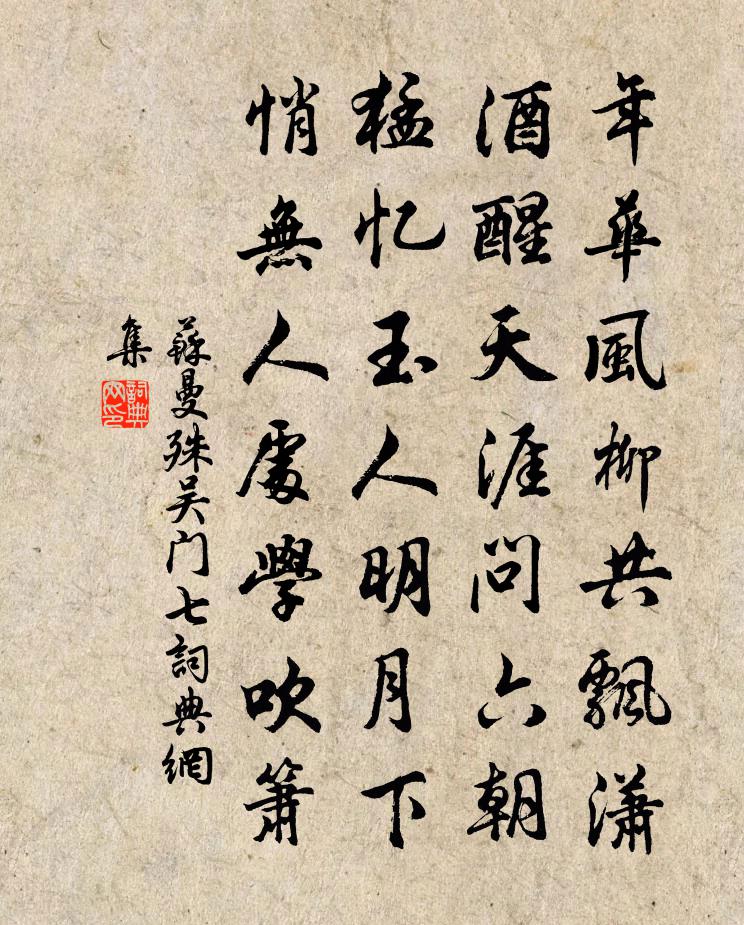 年華風柳共飄瀟
酒醒天涯問六朝
猛忆玉人明月下
悄無人處學吹簫
蘇曼殊吴门七詞典網
集
詞典网印